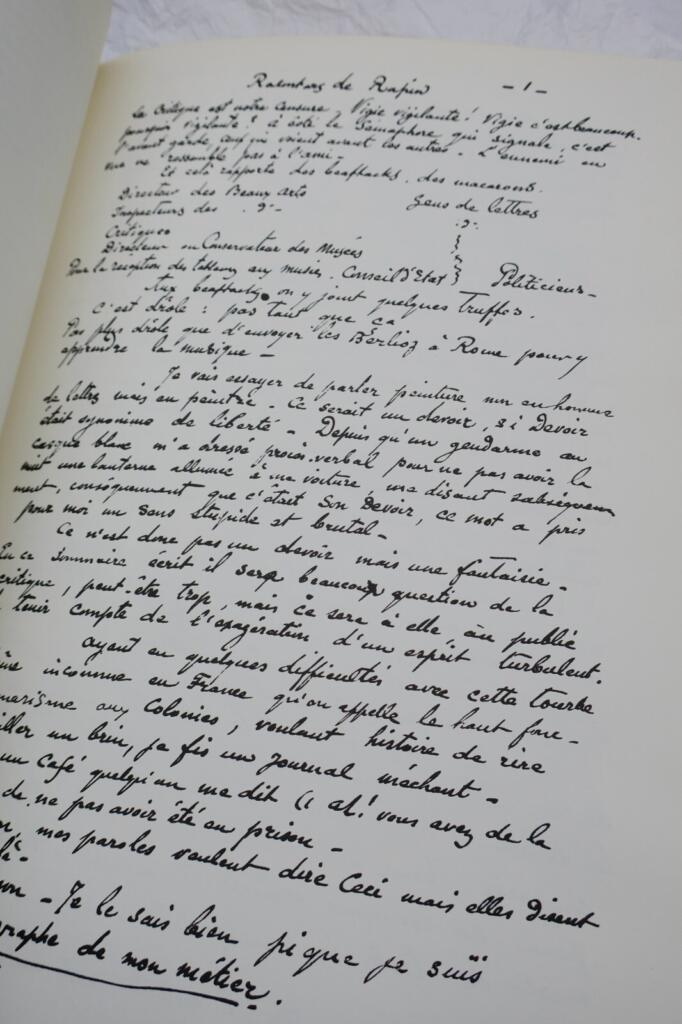 Racontars de Rapin — 1 —
La critique est notre censure, Vigie vigilante! Vigie c'est beaucoup.
pourquoi vigilante? à côté le Sémaphore qui signale, c'est
l'avant garde, ceux qui voient avant les autres - L'ennemi en
ne ressemble pas à l'ami -
Et celà rapporte des beaftacks, des macarons.
Directeur des Beaux Arts Gens de lettres
Inspecteurs des . d°- . d°.
Critiques
Directeur ou Conservateur des Musées
Pour la réception des tableaux aux musées. Conseil d'Etat } Politicieux -
Aux beaftacks on y joint quelques truffes.
C'est drôle : pas tant que ça
Pas plus drôle que d'envoyer les Berlioz à Rome pour y
apprendre la musique -
Je vais essayer de parler peinture non en homme
de lettres mais en peintre - Ce serait un devoir, si Devoir
était synonime de liberté - Depuis qu'un gendarme au
casque blanc m'a dressé procès-verbal pour ne pas avoir la
nuit une lanterne allumée à ma voiture, me disant subséquem
ment, conséquemment que c'était Son Devoir, ce mot a pris
pour moi un sens stupide et brutal -
Ce n'est donc pas un devoir mais une fantaisie -
En ce Sommaire écrit il sera beaucoup question de la
critique, peut-être trop, mais ce sera à elle, au publié
tenir compte de l'exagération d'un esprit turbulent.
ayant eu quelques difficultés avec cette tourbe
inconnue en France qu'on appelle le haut fonc-
narisme aux Colonies, voulant histoire de rire
iller un brin, je fis un Journal méchant -
un Café quelqu'un me dit (( ah! vous avez de la
de ne pas avoir été en prison -
mes paroles veulent dire Ceci mais elles disent
là -
on - Je le sais bien pique je suis
graphe de mon métier.